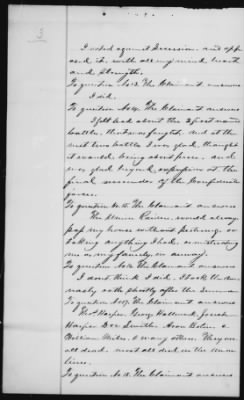 3
I voted against Secession, and opp
osed it, with all my mind, heart
and strength.
To question No 13. The Claimant answers
I did.
To question No 14. The Claimant answers
I felt bad about the 2 first
battles, that was fought, and at the
next two battles I was glad, thought
it would bring about peace, and
was glad beyond expression at the
final surrender of the Confederate
forces.
To question No 15 The Claimant answers
The Union Raiders, would always
pass my house without pestering, or
taking anything I had, or mistreating
me or my family, in anyway.
To question No 16 The Claimant answers
I don't think I did, I took the Am
nesty oath shortly after the Surren
To question No 17. The Claimant answers
Thos Harper, George Hallmark, Josiah
Harper, Doc Smith,
William Hiles, & many others. They are
all dead. most all died in the
time.
To question No 18. The Claimant answers